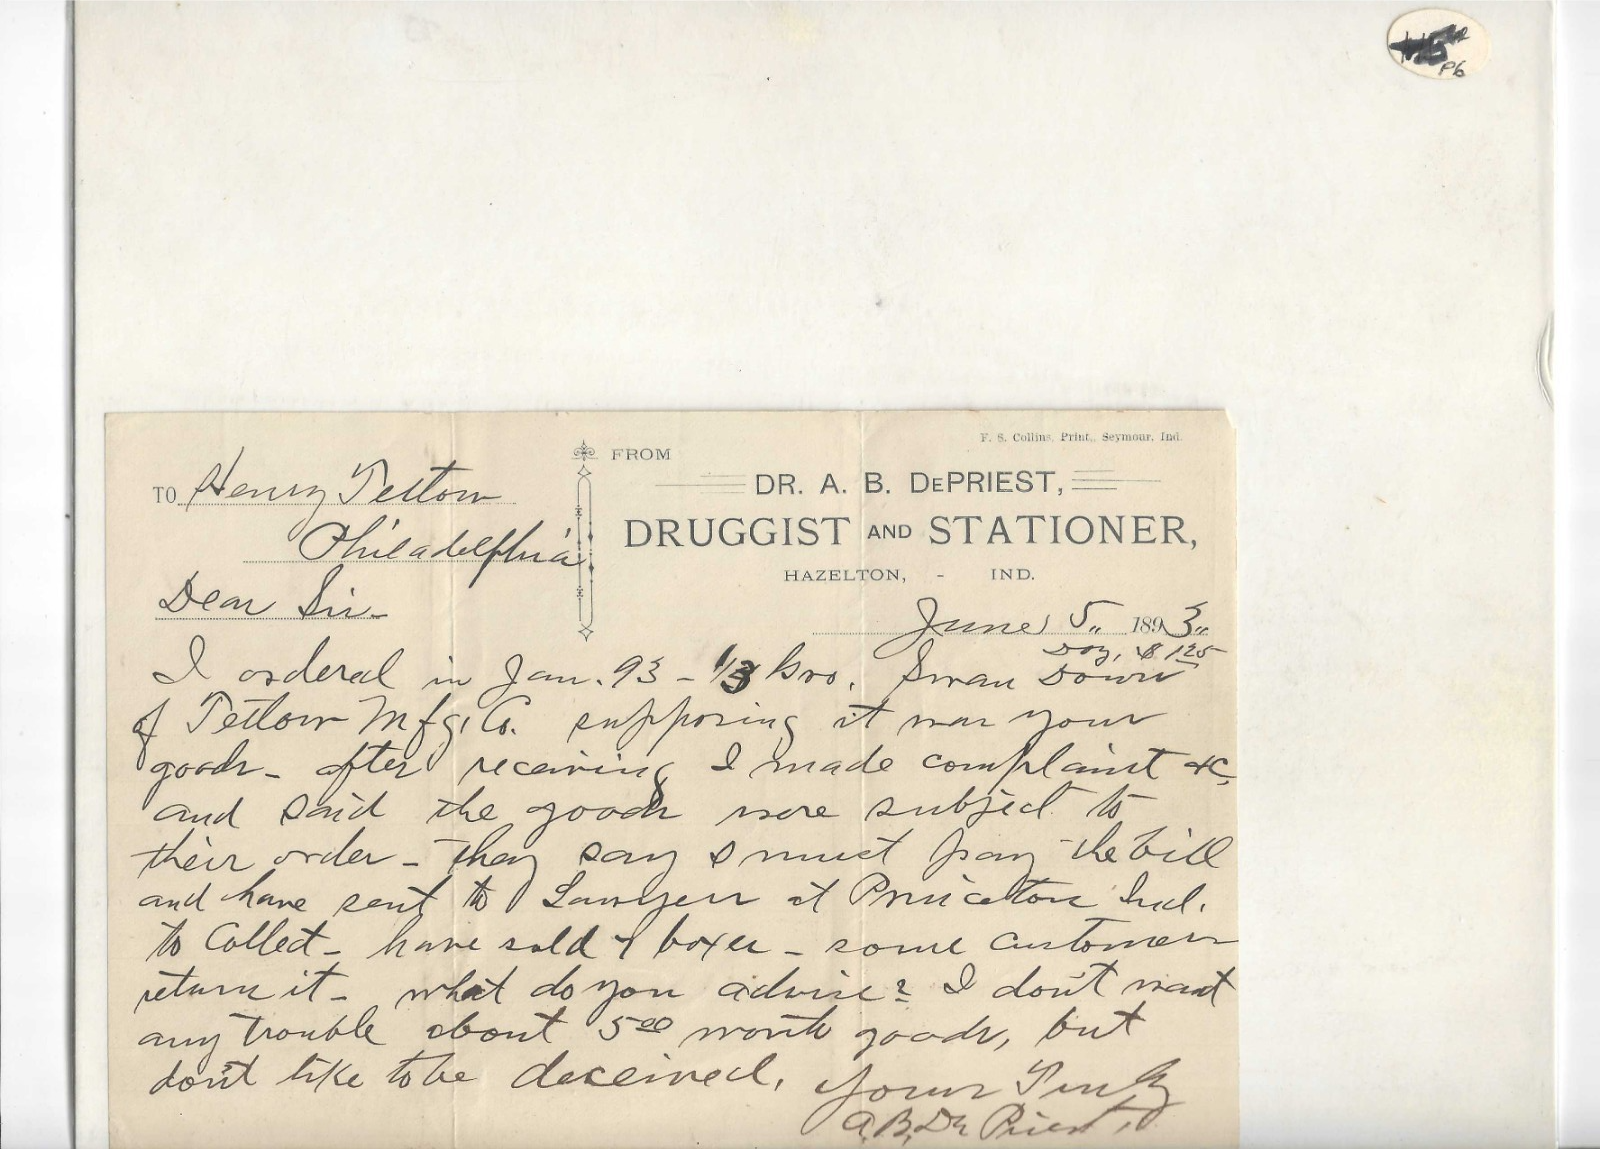 P6
F. S. Collins, Print., Seymour, Ind.
FROM
DR. A. B. DEPRIEST,
DRUGGIST AND STATIONER,
HAZELTON, - IND.
TO Henry Tetlow
Philadelphia
Dear Sir-
June 5,, 1893,,
Doz, $ 1.25
I ordered in Jan. 93 - 1/3 Gro. Swan Down
of Tetlow Mfg. Co. supposing it was your
goods - after receiving I made complaint &C,
and said the goods were subject to
their order - They say I must pay the bill
and have sent to Lawyers at Princeton Ind.
to Collect - have sold boxes - some customers
return it - what do you advise? I don't want
any trouble about 5.00 worth goods, but
don't like to be deceived.
Yours Truly
A. B. De Priest.